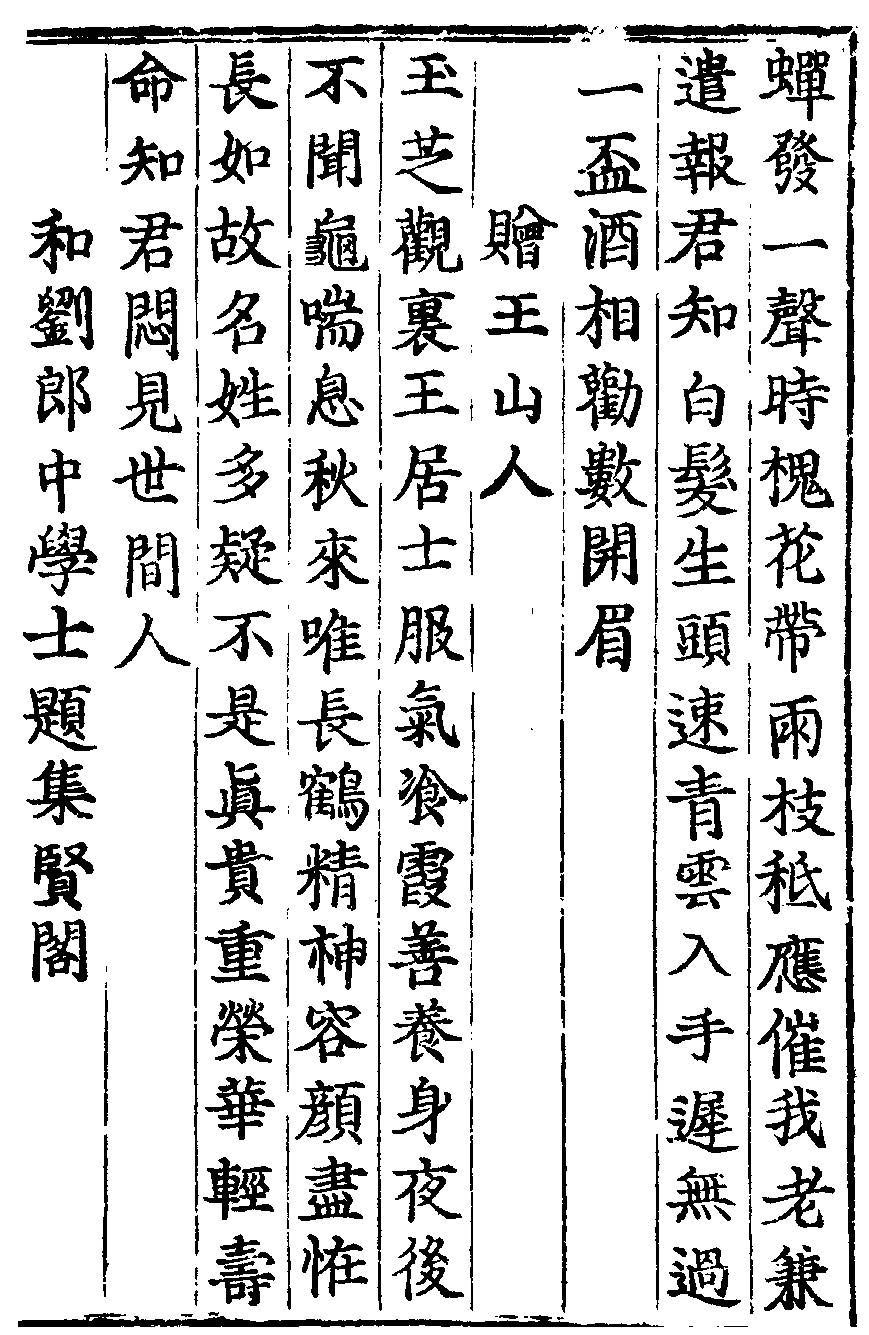 蟬發一聲時槐花帶兩枝秪應催我老兼
遣報君知白髮生頭速青雲入手遲無過
一盃酒相勸數開眉
贈王山人
玉芝觀裏王居士服氣飡霞善養身夜後
不聞龜喘息秋來唯長鶴精神容顏盡恠
長如故名姓多疑不是眞貴重榮華輕壽
命知君悶見世間人
和劉郎中學士題集賢閣